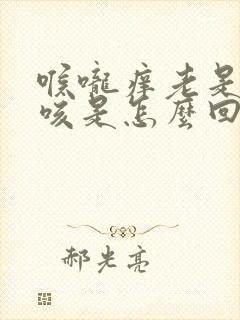 喉嚨痒老是
咳是怎麼回
郝光亮